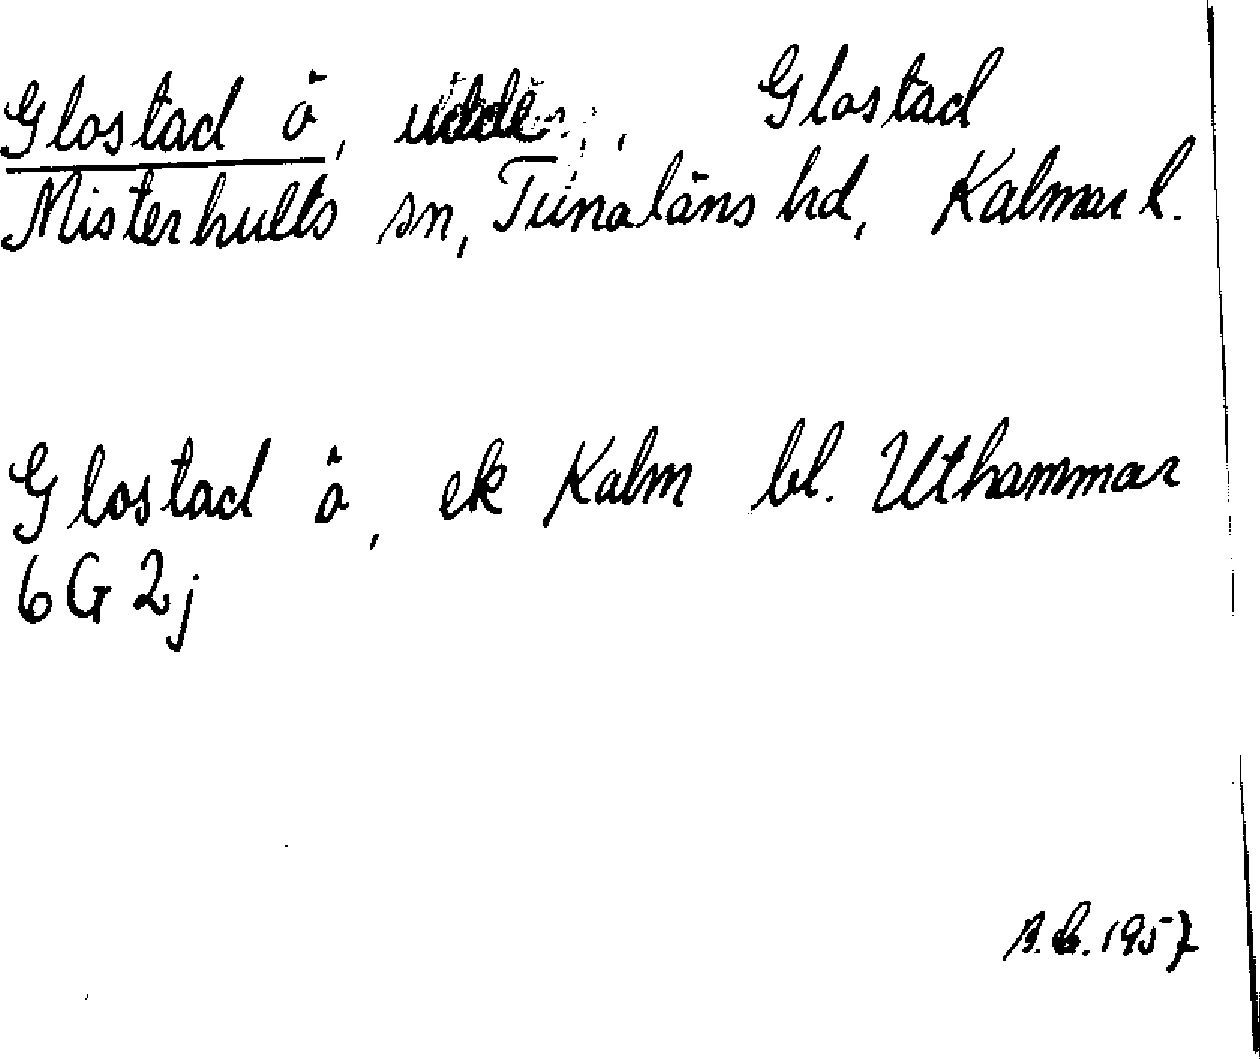 Glostad ö, udde, Glostad
Misterhults sn, Tunaläns hd, Kalmar l.
Glostad ö, ek Kalm bl. Uthammar
6G 2j
1957